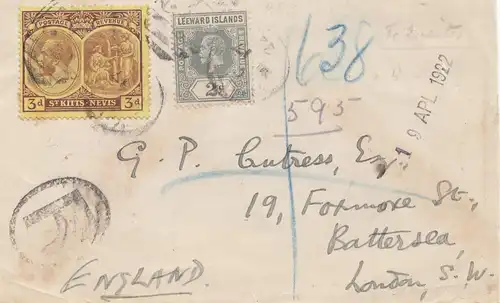 POSTAGE & REVENUE
3d ST KITTS-NEVIS 3d
LEEWARD ISLANDS
POSTAGE & REVENUE
2d
638
595
9 APL 1922
G. P. Cutress, Esq
19, Formore St.,
Battersea,
London, S.W.
ENGLAND.